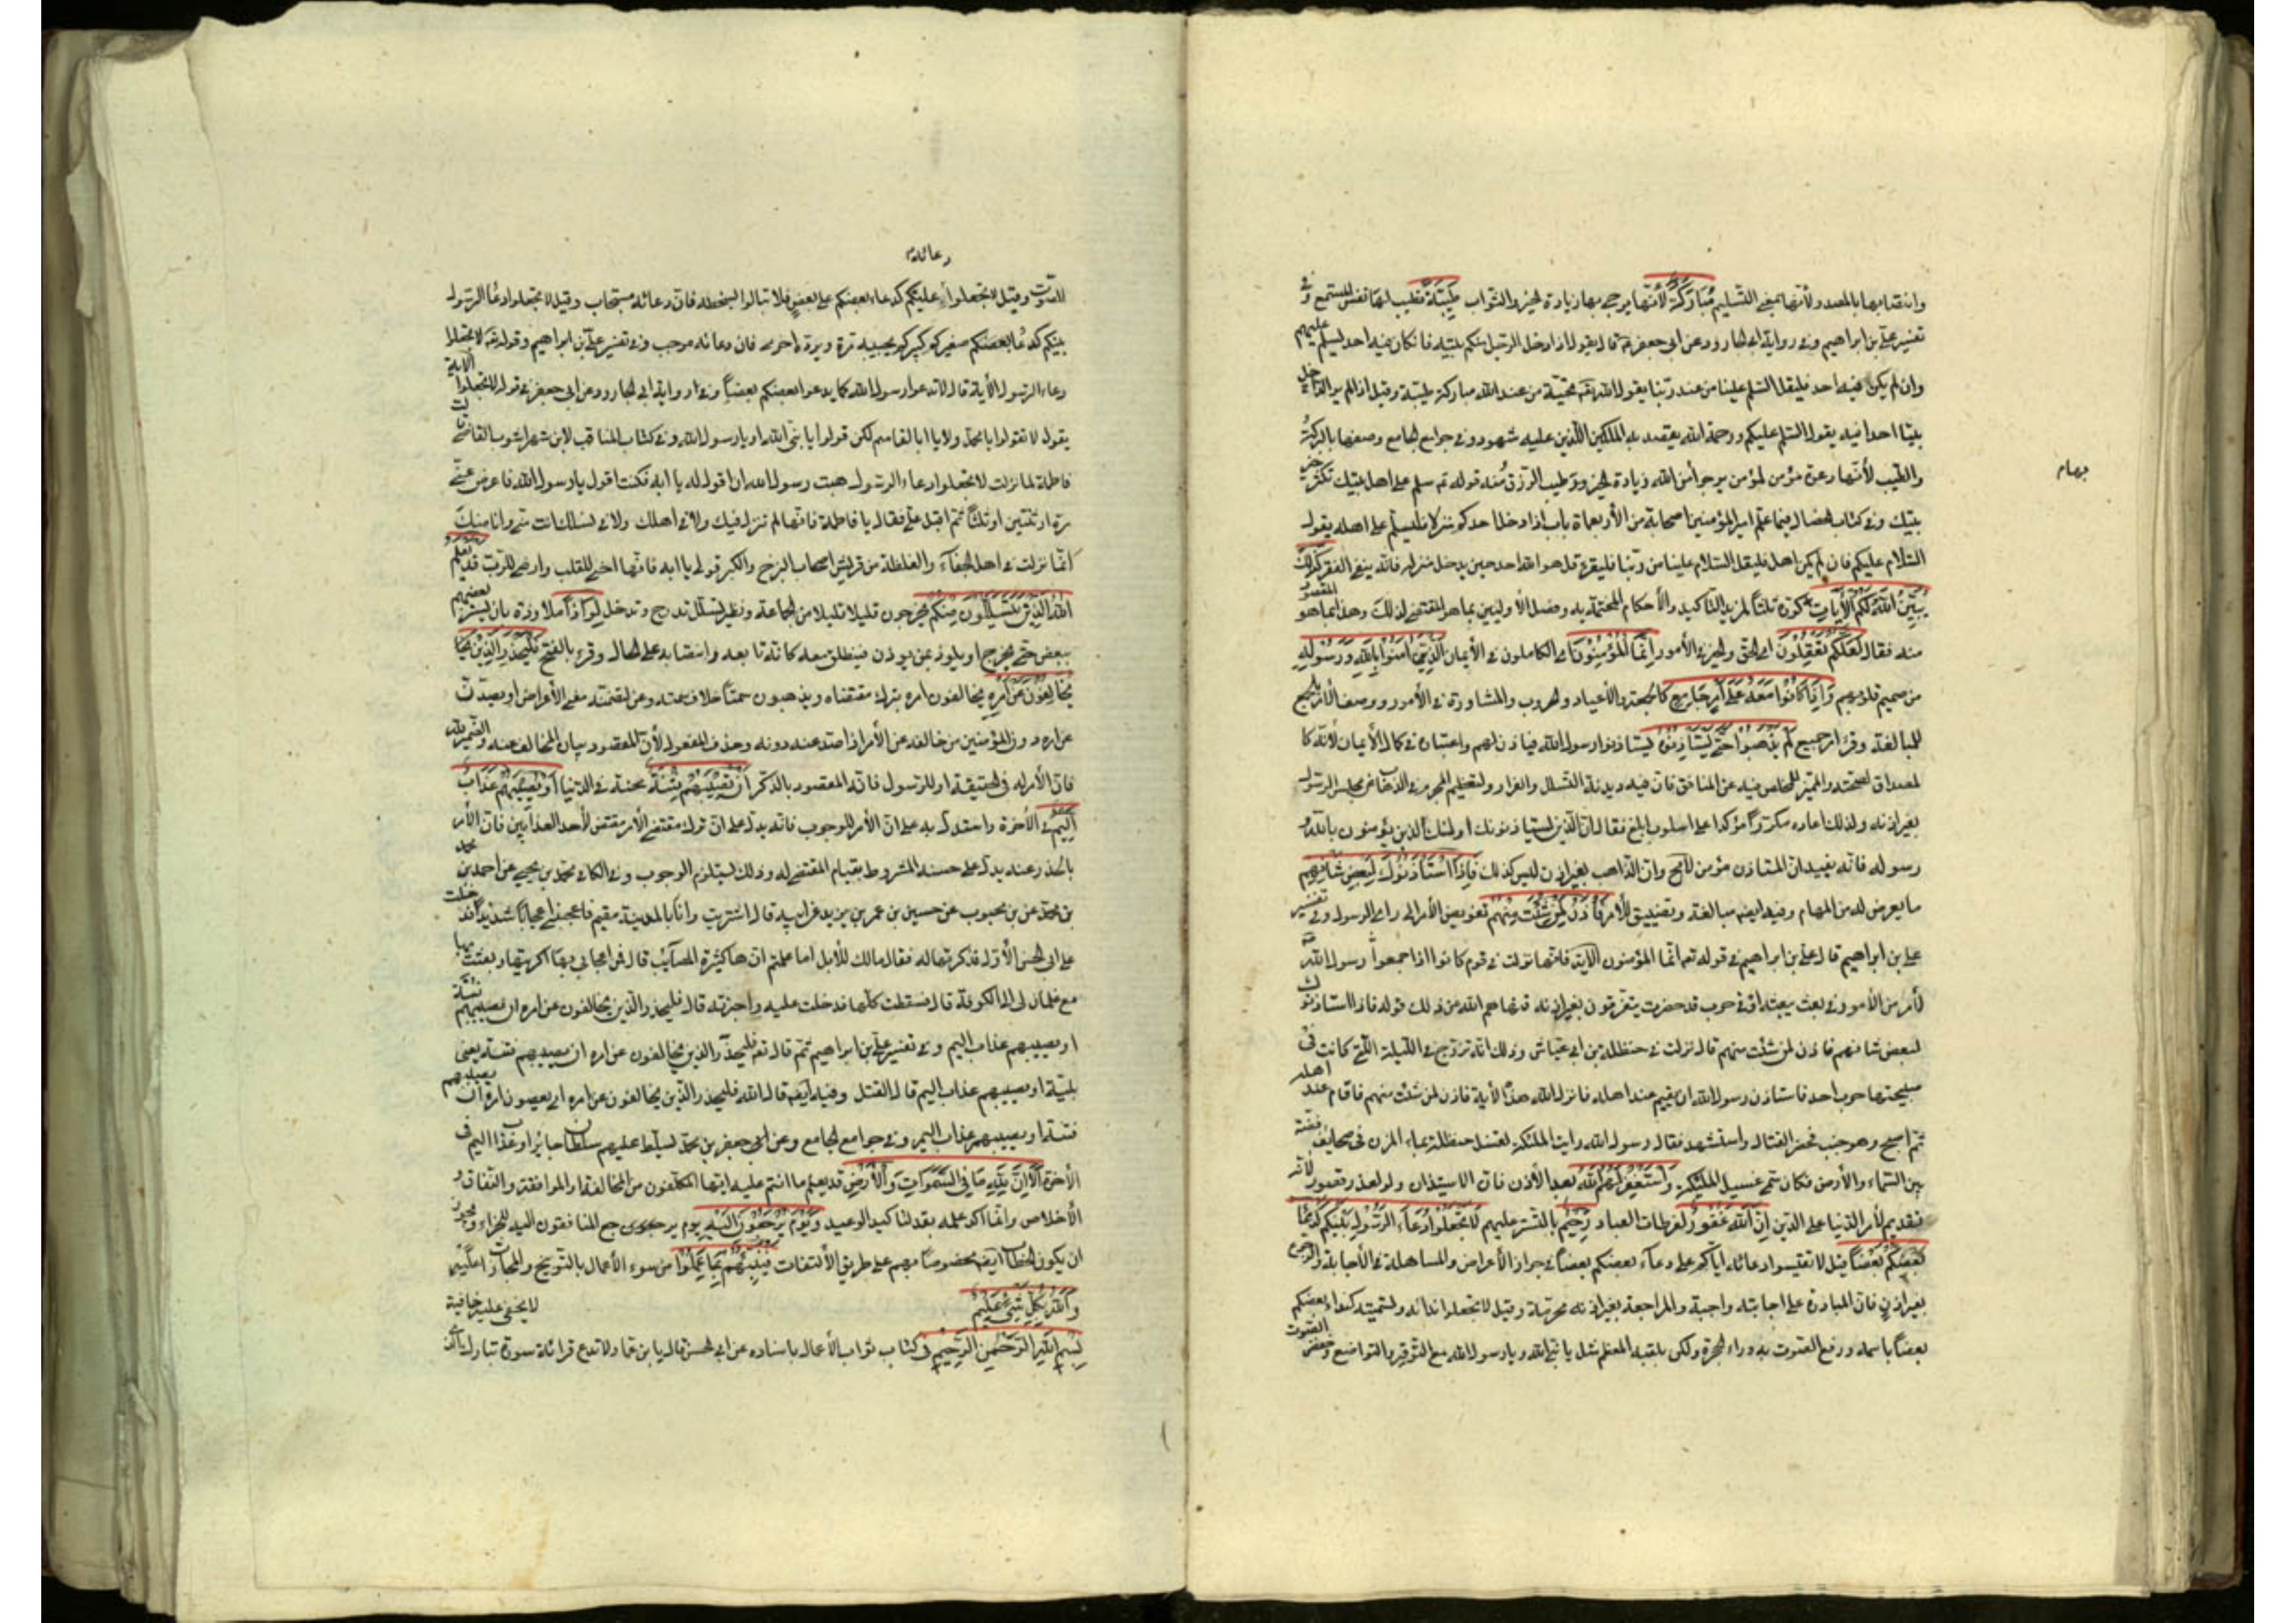 وانتصابها بالمصدر لأنها بمعنى التسليم مُبَارَكَةً لأنها يرجى بها زيادة الخير والثواب طَيِّبَةً تطيب لها نفس المستمع وفي
تفسير علي بن ابراهيم وفي رواية ابي الجارود عن ابي جعفر قال يقول اذا دخل الرجل منكم بيته فان كان فيه احد ليسلم عليهم
وان لم يكن فيه احد فليقل السلم علينا من عند ربنا يقول الله تحية من عند الله مباركة طيبة وقيل اذا لم ير الداخل
بيتا احدا فيه يقول السلم عليكم ورحمة الله يقصد به الملكين اللذين عليه شهود وفي جوامع الجامع وصفها بالبركة
والطيب لأنها دعوة مؤمن لمؤمن يرجو من الله زيادة الخير وطيب الرزق ومنه قوله سلم على اهل بيتك تكثر خير
بهام
بيتك وفي كتاب الخصال فيما علم امير المؤمنين اصحابه من الأربعماة باب اذا دخل احدكم منزلا فليسلم على اهله يقول
السلام عليكم فان لم يكن اهل فليقل السلام علينا من ربنا وليقرء قل هو الله احد حين يدخل منزله فانه ينفي الفقر كَذٰلِكَ
يُبَيِّنُ اللهُ لَكُمُ الْأَيَاتِ كرره ثلثا لمزيد التاكيد والأحكام المختتمة به وفصل الأولين بما هو المقتضي لذلك وهذا بما هو المقصود
منه فقال لَعَلَّكُمْ تَعْقِلُوْنَ اي الحق والخير في الأمور اِنَّمَا الْمُؤْمِنُوْنَ اي الكاملون في الأيمان الَّذِيْنَ اٰمَنُوْا بِاللهِ وَرَسُوْلِهِ
من صميم قلوبهم وَاِذَا كَانُوْا مَعَهُ عَلٰى اَمْرٍ جَامِعٍ كالجمعة والأعياد والحروب والمشاورة في الأمور ووصف الأمر بالجمع
للمبالغة وقرئ امر جميع لَمْ يَذْهَبُوْا حَتّٰى يَسْتَاْذِنُوْهُ يستاذنوا رسول الله فياذن لهم واعتباره في كمال الأيمان لأنه كا
لمصداق لصحته والمميز للمخلص فيه عن المنافق فان فيه ديدنه التسلل والفرار ولتعظيم الجرم في الذهاب عن مجلس الرسول
بغير اذنه ولذلك اعاده مكررا مؤكدا على اسلوب ابلغ فقال ان الذين يستاذنونك اولئك الذين يؤمنون بالله و
رسوله فانه يفيد ان المستاذن مؤمن لا محـ وان الذاهب بغير اذن ليس كذلك فَاِذَا اسْتَاْذَنُوْكَ لِبَعْضِ شَاْنِهِمْ
ما يعرض لهم من المهام وفيه ايضا مبالغة وتضييق للأمر فَاْذَنْ لِمَنْ شِئْتَ مِنْهُمْ تفويض الأمر الى راى الرسول وفي تفسير
علي بن ابراهيم قال علي بن ابراهيم في قوله انما المؤمنون الاية فانها نزلت في قوم كانوا اذا جمعوا رسول الله
لأمر من الأمور في بعث يبعثه او في حرب قد حضرت يتفرقون بغير اذنه فنهاهم الله عن ذلك قوله فاذا استاذنوك
لبعض شانهم فاذن لمن شئت منهم قال نزلت في حنظلة بن ابي عياش وذلك انه تزوج في الليلة التي كانت في
صبيحتها حرب احد فاستاذن رسول الله ان يقيم عند اهله فانزل الله هذه الأية فاذن لمن شئت منهم فاقام عند اهله
ثم اصبح وهو جنب فحضر القتال واستشهد فقال رسول الله رايت الملئكة تغسل حنظلة بماء المزن في صحايف فضة
بين السماء والأرض فكان سمي غسيل الملئكة وَاسْتَغْفِرْ لَهُمُ اللهَ بعد الأذن فان الاستيذان ولو لعذر قصور لأنه
تقديم لأمر الدنيا على الدين اِنَّ اللهَ غَفُوْرٌ لفرطات العباد رَحِيْمٌ بالتستر عليهم لَا تَجْعَلُوْا دُعَاءَ الرَّسُوْلِ بَيْنَكُمْ كَدُعَاءِ
بَعْضِكُمْ بَعْضًا قيل لا تقيسوا دعائه اياكم على دعاء بعضكم بعضا في جواز الأعراض والمساهلة في الأجابة والرجوع
بغير اذن فان المبادرة على اجابته واجبة والمراجعة بغير اذنه محرمة وقيل لا تجعلوا ندائه وتسميته كنداء بعضكم
بعضا باسمه ورفع الصوت به وراء الحجرة ولكن بلقبه المعظم مثل يا نبي الله ويا رسول الله مع التوقير والتواضع وخفض الصوت
دعائه
للصوت وقيل لا تجعلوا دعاء عليكم كدعاء بعضكم على بعض فلا تبالوا بسخطه فان دعائه مستجاب وقيل لا تجعلوا دعاء الرسول
بينكم كدعاء بعضكم صغيركم كبيركم يجيبه مرة ويرده اخرى فان دعائه موجب وفي تفسير علي بن ابراهيم وقوله لا تجعلوا
دعاء الرسول الأية قال لا تدعوا رسول الله كما يدعوا بعضكم بعضا وفي رواية ابي الجارود عن ابي جعفر في قوله لا تجعلوا الاية
يقول لا تقولوا يا محمد ولا يا ابا القاسم لكن قولوا يا نبي الله او يا رسول الله وفي كتاب المناقب لابن شهراشوب القاضي قالت
فاطمة لما نزلت لا تجعلوا دعاء الرسول هبت رسول الله ان اقول له يا ابه فكنت اقول يا رسول الله فاعرض عني
مرة او ثنتين او ثلثا ثم اقبل علي فقال يا فاطمة فانها لم تنزل فيك ولا في اهلك ولا في نسلك انت مني وانا منك
انما نزلت في اهل الجفاء والغلظة من قريش اصحاب البزخ والكبر قولي يا ابه فانها احيى للقلب وارضى للرب قَدْ يَعْلَمُ
اللهُ الَّذِيْنَ يَتَسَلَّلُوْنَ مِنْكُمْ يخرجون قليلا قليلا من الجماعة ونظير تسلل تدرج وتدخل لِوَاذًا ملاوذة بان يستتر بعضهم
ببعض حتى يخرج او يلوذ بمن يوذن فينطلق معه كانه تابعه وانتصابه على الحال وقرئ بالفتح فَلْيَحْذَرِ الَّذِيْنَ
يُخَالِفُوْنَ عَنْ اَمْرِهِ يخالفون امره بترك مقتضاه ويذهبون سمتا خلاف سمته وعن لتضمنه معنى الأعراض او يصدّون
عن امره دون المؤمنين من خالفه عن الأمر اذا صد عنه دونه وحذف المفعول لأن المقصود بيان المخالف عنه والضمير لله
فان الأمر له في الحقيقة او للرسول فانه المقصود بالذكر اَنْ تُصِيْبَهُمْ فِتْنَةٌ محنة في الدنيا اَوْ يُصِيْبَهُمْ عَذَابٌ
اَلِيْمٌ في الأخرة واستدل به على ان الأمر للوجوب فانه يدل على ان ترك مقتضى الأمر مقتض لأحد العذابين فان الأمر
بالحذر عنه يدل على حسنه المشروط بقيام المقتضي له وذلك يستلزم الوجوب وفي الكافي محمد بن يحيى عن احمد بن محمد
بن محمد عن بن محبوب عن حسين بن عمر بن يزيد عن ابيه قال اشتريت وانا بالمدينة مقيم فاعجبني اعجابا شديدا فدخلت
على ابي الحسن الأول فذكرتها له فقال مالك للأبل اما علمتم انها كثيرة المصايب قال فمن اعجابي بها اكريتها وبعثت بها
مع غلمان لي الى الكوفة قال فسقطت كلها فدخلت عليه واخبرته قال فليحذر الذين يخالفون عن امره ان تصيبهم فتنة
او يصيبهم عذاب اليم وفي تفسير علي بن ابراهيم ثم قال فليحذر الذين يخالفون عن امره ان تصيبهم فتنة يعني
بلية او يصيبهم عذاب اليم قال القتل وفيه ايضا قال الله فليحذر الذين يخالفون عن امره اي يعصون امره ان تصيبهم
فتنة او يصيبهم عذاب اليم وفي جوامع الجامع وعن ابي جعفر بن محمد يسلط عليهم سلطان جائر او عذاب اليم في
الأخرة اَلَا اِنَّ لِلّٰهِ مَا فِي السَّمٰوَاتِ وَالْأَرْضِ قد يعلم ما انتم عليه ايها المكلفون من المخالفة والموافقة والنفاق و
الأخلاص وانما اكد علمه بقد لتاكيد الوعيد وَيَوْمَ يُرْجَعُوْنَ اِلَيْهِ يوم يرجع المنافقون اليه للجزاء ويجوز
ان يكون الخطاب ايضا مخصوصا بهم على طريق الألتفات فَيُنَبِّئُهُمْ بِمَا عَمِلُوْا من سوء الأعمال بالتوبيخ والمجازاة
وَاللهُ بِكُلِّ شَيْءٍ عَلِيْمٌ لا يخفى عليه خافية
بِسْمِ اللهِ الرَّحْمٰنِ الرَّحِيْمِ في كتاب ثواب الأعمال باسناده عن ابي الحسن قال يا بن عمار لا تدع قرائة سورة تبارك الذي